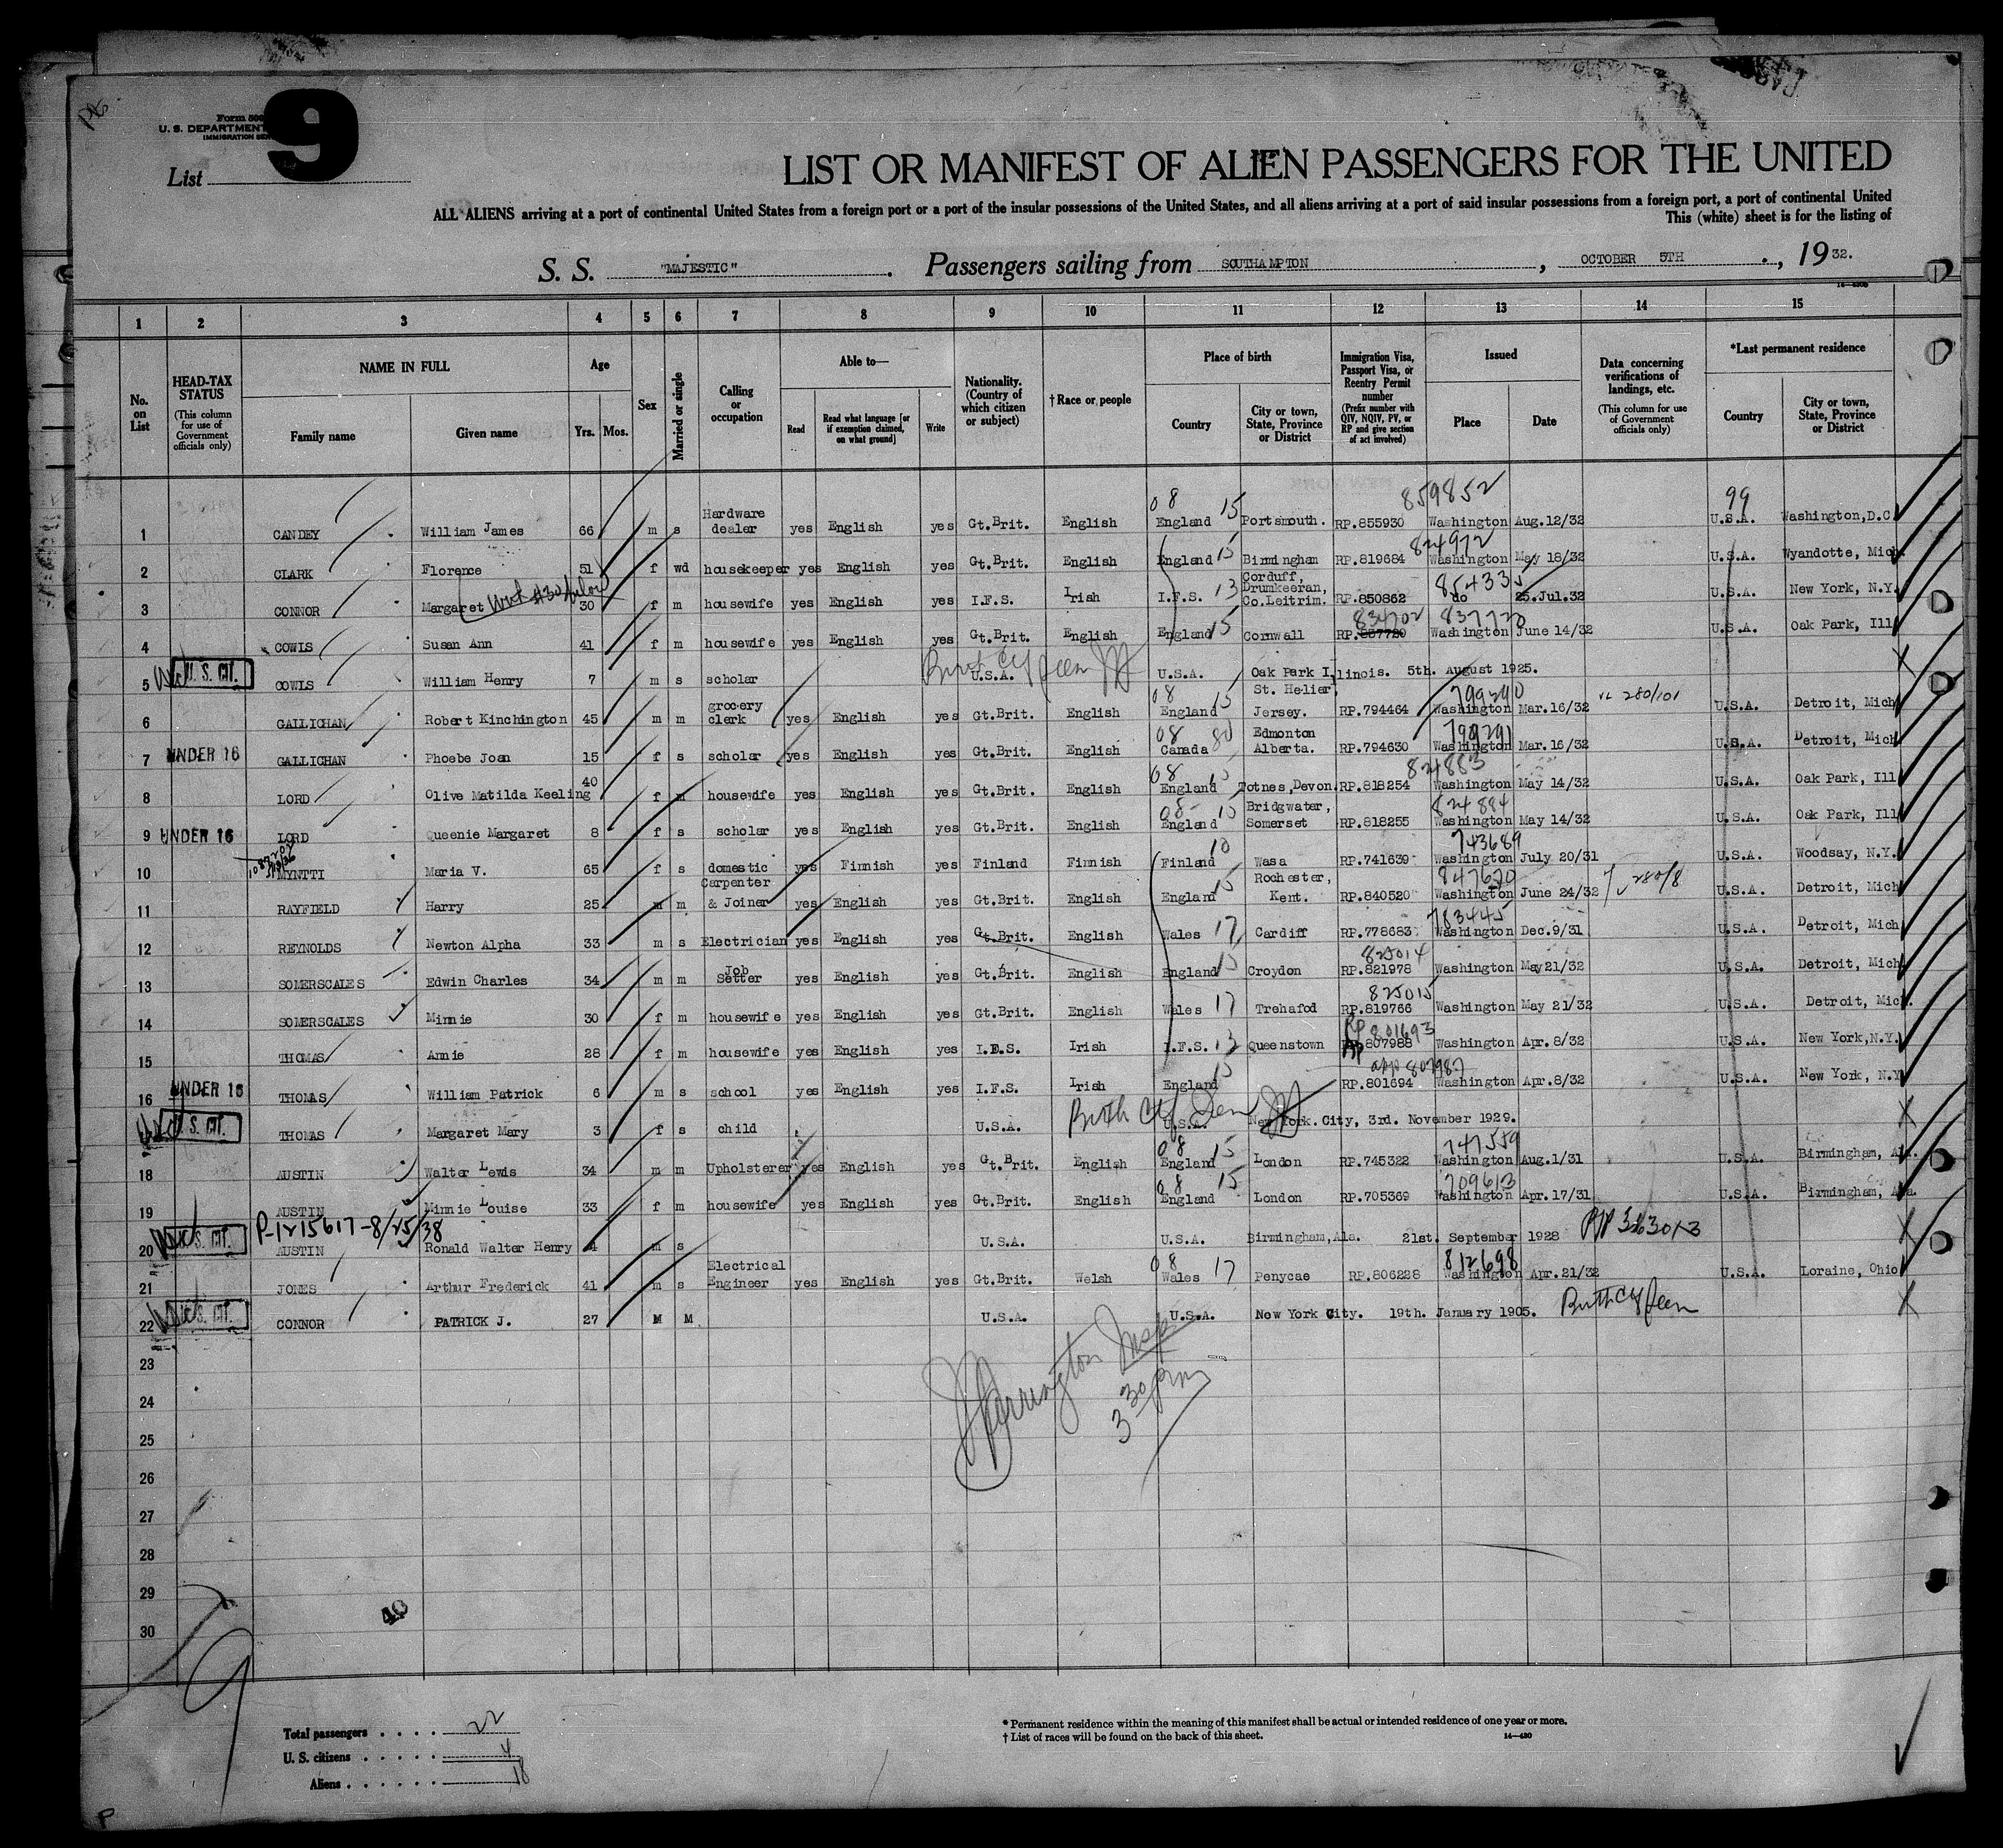 9
Form 500
U. S. DEPARTMENT
IMMIGRATION SER
List
LIST OR MANIFEST OF ALIEN PASSENGERS FOR THE UNITED
ALL ALIENS arriving at a port of continental United States from a foreign port or a port of the insular possessions of the United States, and all aliens arriving at a port of said insular possessions from a foreign port, a port of continental United
This (white) sheet is for the listing of
S. S. "MAJESTIC". Passengers sailing from SOUTHAMPTON, OCTOBER 5TH, 1932.
1 2 3 4 5 6 7 8 9 10 11 12 13 14 15
No. on List
HEAD-TAX STATUS (This column for use of Government officials only)
NAME IN FULL
Family name Given name
Age Yrs. Mos.
Sex
Married or single
Calling or occupation
Able to— Read Read what language [or if exemption claimed, on what ground] Write
Nationality. (Country of which citizen or subject)
†Race or people
Place of birth Country City or town, State, Province or District
Immigration Visa, Passport Visa, or Reentry Permit number (Prefix number with QIV, NQIV, PV, or RP and give section of act involved)
Issued Place Date
Data concerning verifications of landings, etc. (This column for use of Government officials only)
*Last permanent residence Country City or town, State, Province or District
08 15 859852 99
1 CANDEY William James 66 m s Hardware dealer yes English yes Gt.Brit. English England Portsmouth. RP.855930 Washington Aug.12/32 U.S.A. Washington,D.C
824972
2 CLARK Florence 51 f wd housekeeper yes English yes Gt.Brit. English England 15 Birmingham RP.819684 Washington May 18/32 U.S.A. Wyandotte, Mich.
3 CONNOR Margaret 30 f m housewife yes English yes I.F.S. Irish I.F.S. 13 Corduff, Drumkeeran, Co.Leitrim. RP.850862 do 25.Jul.32 U.S.A. New York, N.Y.
834702 837720
4 COWIS Susan Ann 41 f m housewife yes English yes Gt.Brit. English England 15 Cornwall RP.837720 Washington June 14/32 U.S.A. Oak Park, Ill
5 U. S. CIT. COWLS William Henry 7 m s scholar U.S.A. U.S.A. Oak Park Illinois. 5th. August 1925.
08 15 799290
6 GALLICHAN Robert Kinchington 45 m m grocery clerk yes English yes Gt.Brit. English England St. Helier, Jersey. RP.794464 Washington Mar.16/32 280/101 U.S.A. Detroit, Mich
08 80 799291
7 UNDER 16 GALLICHAN Phoebe Joan 15 f s scholar yes English yes Gt.Brit. English Canada Edmonton Alberta. RP.794630 Washington Mar.16/32 U.S.A. Detroit, Mich
08 824883
8 LORD Olive Matilda Keeling 40 f m housewife yes English yes Gt.Brit. English England Totnes,Devon. RP.818254 Washington May 14/32 U.S.A. Oak Park, Ill
08 824884
9 UNDER 16 LORD Queenie Margaret 8 f s scholar yes English yes Gt.Brit. English England Bridgwater, Somerset RP.818255 Washington May 14/32 U.S.A. Oak Park, Ill
10 743689
10 MYNTTI Maria V. 65 f s domestic yes Finnish yes Finland Finnish Finland Wasa RP.741639 Washington July 20/31 U.S.A. Woodsay, N.Y.
847620
11 RAYFIELD Harry 25 m m Carpenter & Joiner yes English yes Gt.Brit. English England 15 Rochester, Kent. RP.840520 Washington June 24/32 280/8 U.S.A. Detroit, Mich
783445
12 REYNOLDS Newton Alpha 33 m s Electrician yes English yes Gt.Brit. English Wales 17 Cardiff RP.778683 Washington Dec.9/31 U.S.A. Detroit, Mich
825014
13 SOMERSCALES Edwin Charles 34 m m Job Setter yes English yes Gt.Brit. English England 15 Croydon RP.821978 Washington May21/32 U.S.A. Detroit, Mich
825015
14 SOMERSCALES Minnie 30 f m housewife yes English yes Gt.Brit. English Wales 17 Trehafod RP.819766 Washington May 21/32 U.S.A. Detroit, Mich.
RP 801693
15 THOMAS Annie 28 f m housewife yes English yes I.F.S. Irish I.F.S. 13 Queenstown RP.807988 Washington Apr. 8/32 U.S.A. New York,N.Y.
app 807987
16 UNDER 16 THOMAS William Patrick 6 m s school yes English yes I.F.S. Irish England 15 RP.801694 Washington Apr.8/32 U.S.A. New York, N.Y
U. S. CIT. THOMAS Margaret Mary 3 f s child U.S.A. U.S.A. New York. City, 3rd. November 1929.
08 15 747559
18 AUSTIN Walter Lewis 34 m m Upholsterer yes English yes Gt.Brit. English England London RP.745322 Washington Aug.1/31 U.S.A. Birmingham, Ala.
08 15 709613
19 AUSTIN Minnie Louise 33 f m housewife yes English yes Gt.Brit. English England London RP.705369 Washington Apr.17/31 U.S.A. Birmingham, Ala.
P-1215617-8/25/38
20 U. S. CIT. AUSTIN Ronald Walter Henry 4 m s U.S.A. U.S.A. Birmingham,Ala. 21st. September 1928
08 17 812698
21 JONES Arthur Frederick 41 m s Electrical Engineer yes English yes Gt.Brit. Welsh Wales Penycae RP.806228 Washington Apr.21/32 U.S.A. Loraine, Ohio
22 U. S. CIT. CONNOR PATRICK J. 27 M M U.S.A. U.S.A. New York City. 19th. January 1905. Birth Ctf seen
23
24
25
26
27
28
29
30
3 30 pm
40
9
Total passengers . . . . 22
U. S. citizens . . . . . 4
Aliens . . . . . . 18
* Permanent residence within the meaning of this manifest shall be actual or intended residence of one year or more.
† List of races will be found on the back of this sheet.
14—430
P